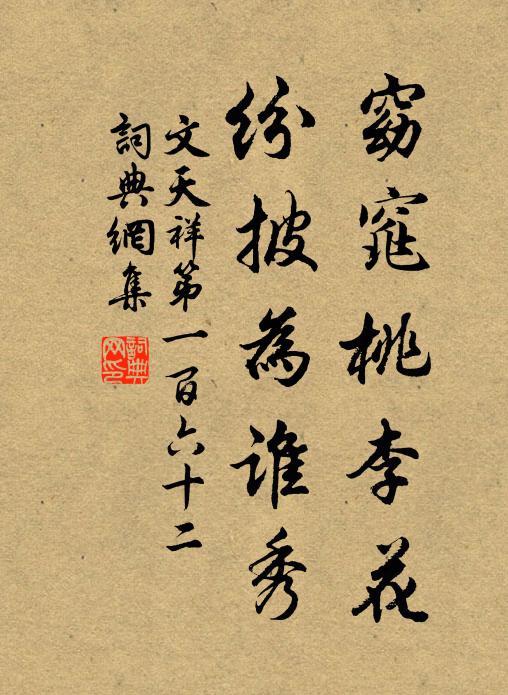 窈窕桃李花
紛披為誰秀
文天祥第一百六十二
詞典網集
詞典
网印